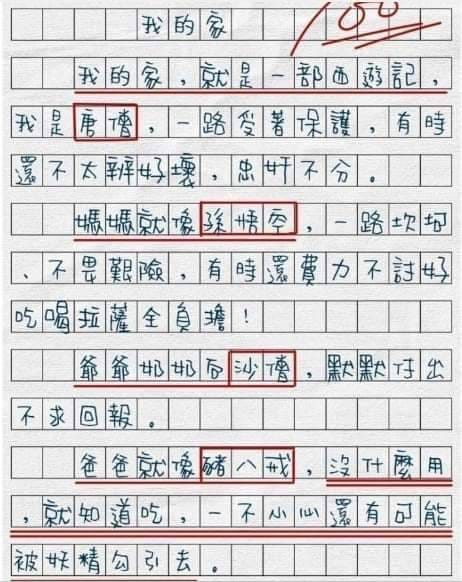 我的家 100
我的家,就是一部西遊記,
我是唐僧,一路受著保護,有時
還不太辨好壞,忠奸不分。
媽媽就像孫悟空,一路坎坷
、不畏艱險,有時還費力不討好
吃喝拉薩全負擔!
爺爺奶奶向沙僧,默默付出
不求回報。
爸爸就像豬八戒,沒什麼用
,就知道吃,一不小心還有可能
被妖精勾引去。